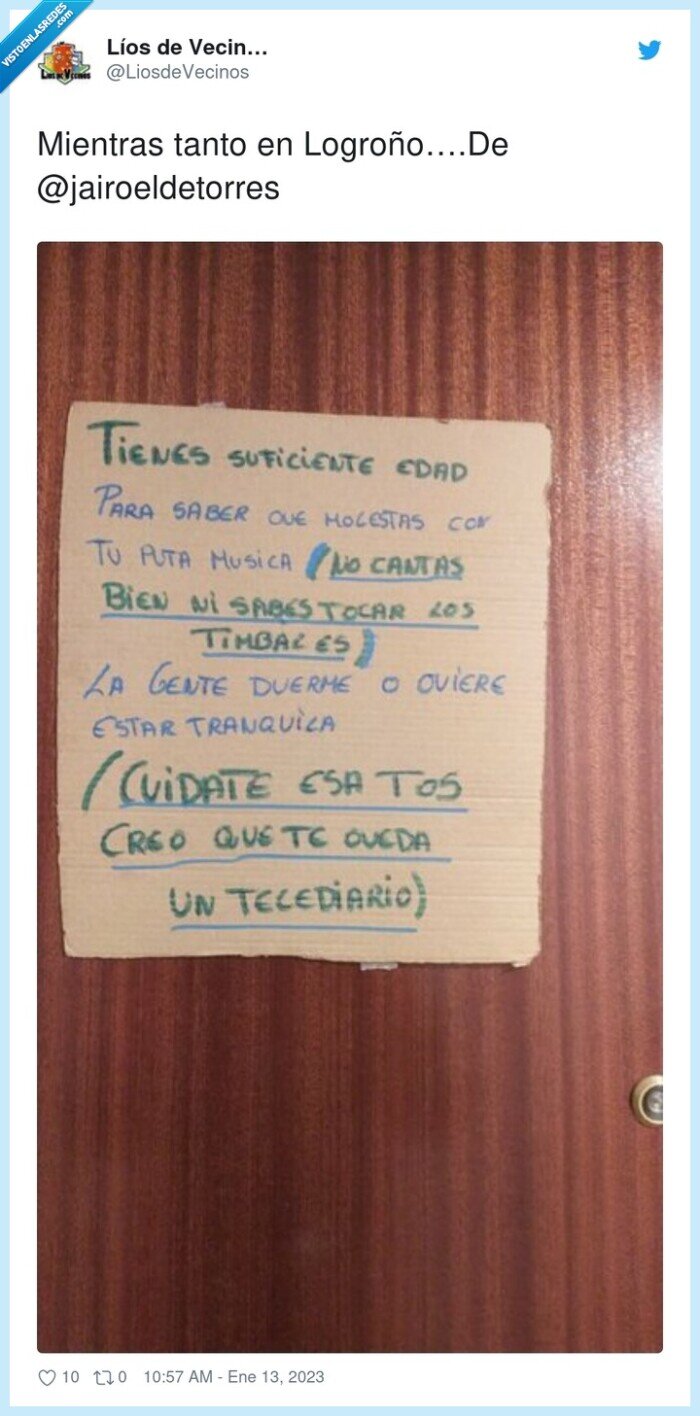 VISTOENLASREDES
.com
Líos de Vecin...
@LiosdeVecinos
Mientras tanto en Logroño....De
@jairoeldetorres
TIENES SUFICIENTE EDAD
PARA SABER QUE MOLESTAS CON
TU PUTA MUSICA (NO CANTAS
BIEN NI SABES TOCAR LOS
TIMBALES)
LA GENTE DUERME O QUIERE
ESTAR TRANQUILA
(CUIDATE ESA TOS
CREO QUE TE QUEDA
UN TELEDIARIO)
10 0 10:57 AM - Ene 13, 2023